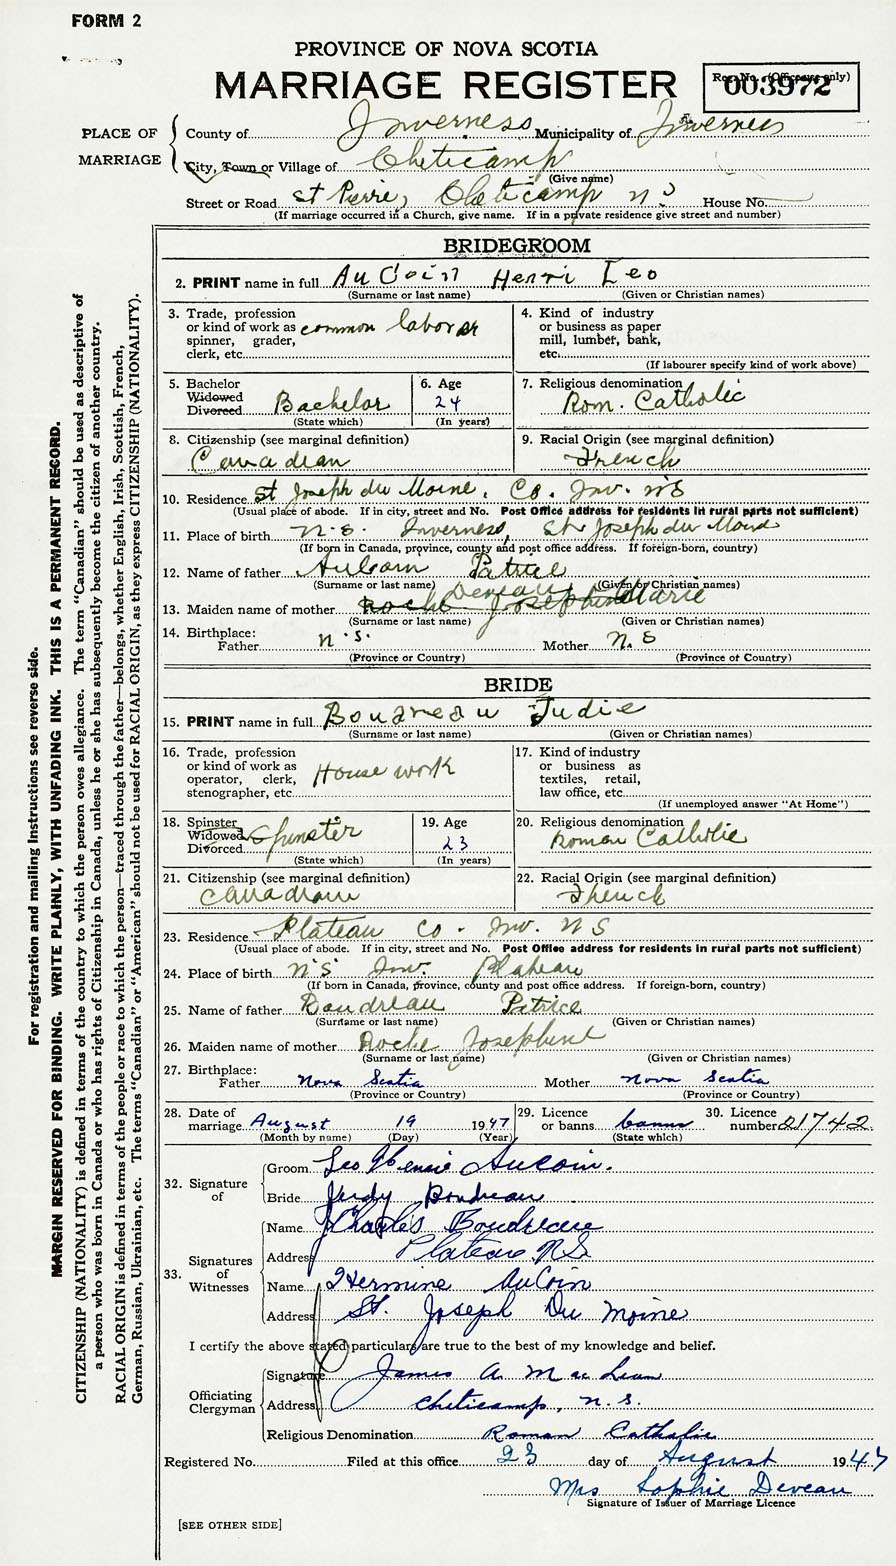 FORM 2
PROVINCE OF NOVA SCOTIA
MARRIAGE REGISTER
Reg. No. (Office use only)
003972
PLACE OF MARRIAGE
County of Inverness Municipality of Inverness
City, Town or Village of Cheticamp
(Give name)
Street or Road St Pierre, Cheticamp N S House No.
(If marriage occurred in a Church, give name. If in a private residence give street and number)
BRIDEGROOM
2. PRINT name in full AuCoin Henri Leo
(Surname or last name) (Given or Christian names)
3. Trade, profession or kind of work as spinner, grader, clerk, etc. common laborer
4. Kind of industry or business as paper mill, lumber, bank, etc.
(If labourer specify kind of work above)
5. Bachelor Widowed Divorced Bachelor
(State which)
6. Age 24
(In years)
7. Religious denomination Rom. Catholic
8. Citizenship (see marginal definition) Canadian
9. Racial Origin (see marginal definition) French
10. Residence St Joseph du Moine, Co. Inv. NS
(Usual place of abode. If in city, street and No. Post Office address for residents in rural parts not sufficient)
11. Place of birth N.S. Inverness, St Joseph du Moine
(If born in Canada, province, county and post office address. If foreign-born, country)
12. Name of father AuCoin Patrice
(Surname or last name) (Given or Christian names)
13. Maiden name of mother Roche Deveau Josephine Marie
(Surname or last name) (Given or Christian names)
14. Birthplace: Father N.S. Mother N.S
(Province or Country) (Province or Country)
BRIDE
15. PRINT name in full Boudreau Judie
(Surname or last name) (Given or Christian names)
16. Trade, profession or kind of work as operator, clerk, stenographer, etc. House work
17. Kind of industry or business as textiles, retail, law office, etc.
(If unemployed answer "At Home")
18. Spinster Widowed Divorced Spinster
(State which)
19. Age 23
(In years)
20. Religious denomination Roman Catholic
21. Citizenship (see marginal definition) Canadian
22. Racial Origin (see marginal definition) French
23. Residence Plateau Co. Inv. N S
(Usual place of abode. If in city, street and No. Post Office address for residents in rural parts not sufficient)
24. Place of birth N S Inv. Plateau
(If born in Canada, province, county and post office address. If foreign-born, country)
25. Name of father Boudreau Patrice
(Surname or last name) (Given or Christian names)
26. Maiden name of mother Roche Josephine
(Surname or last name) (Given or Christian names)
27. Birthplace: Father Nova Scotia Mother Nova Scotia
(Province or Country) (Province or Country)
28. Date of marriage August 19 1947
(Month by name) (Day) (Year)
29. Licence or banns banns
(State which)
30. Licence number 21742
32. Signature of
Groom Leo Henrie AuCoin.
Bride Judy Boudreau
33. Signatures of Witnesses
Name Charles Boudreau
Address Plateau N.S.
Name Hermine AuCoin
Address St. Joseph Du Moine
I certify the above stated particulars are true to the best of my knowledge and belief.
Officiating Clergyman
Signature James A. MacLean
Address Cheticamp, N.S.
Religious Denomination Roman Catholic
Registered No. Filed at this office 23 day of August 1947
Mrs Sophie Deveau
Signature of Issuer of Marriage Licence
[SEE OTHER SIDE]
For registration and mailing instructions see reverse side.
MARGIN RESERVED FOR BINDING. WRITE PLAINLY, WITH UNFADING INK. THIS IS A PERMANENT RECORD.
CITIZENSHIP (NATIONALITY) is defined in terms of the country to which the person owes allegiance. The term "Canadian" should be used as descriptive of
a person who was born in Canada or who has rights of Citizenship in Canada, unless he or she has subsequently become the citizen of another country.
RACIAL ORIGIN is defined in terms of the people or race to which the person—traced through the father—belongs, whether English, Irish, Scottish, French,
German, Russian, Ukrainian, etc. The terms "Canadian" or "American" should not be used for RACIAL ORIGIN, as they express CITIZENSHIP (NATIONALITY).